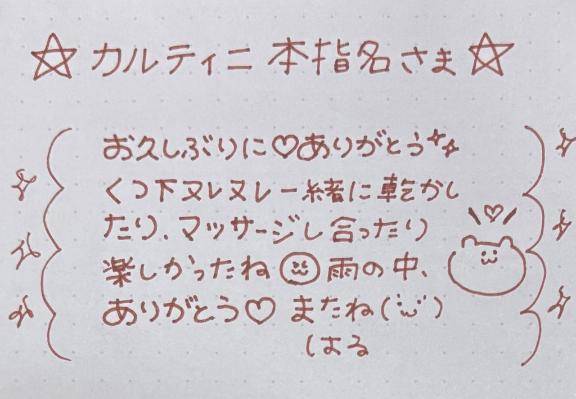 ☆カルティニ 本指名さま☆
お久しぶりに♡ありがとう✨
くつ下ヌレヌレ一緒に乾かし
たり、マッサージし合ったり
楽しかったね 雨の中、
ありがとう♡ またね(˙ω˙)
はる